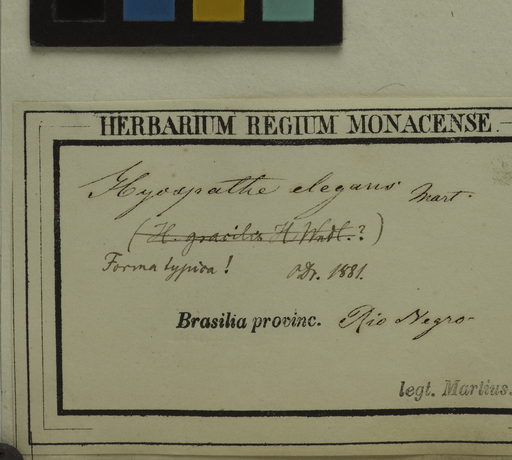 HERBARIUM REGIUM MONACENSE.
Hyospathe elegans Mart.
(H. gracilis H Wndl.?)
Forma typica! Dr. 1881.
Brasilia provinc. Rio Negro
legt. Martius.